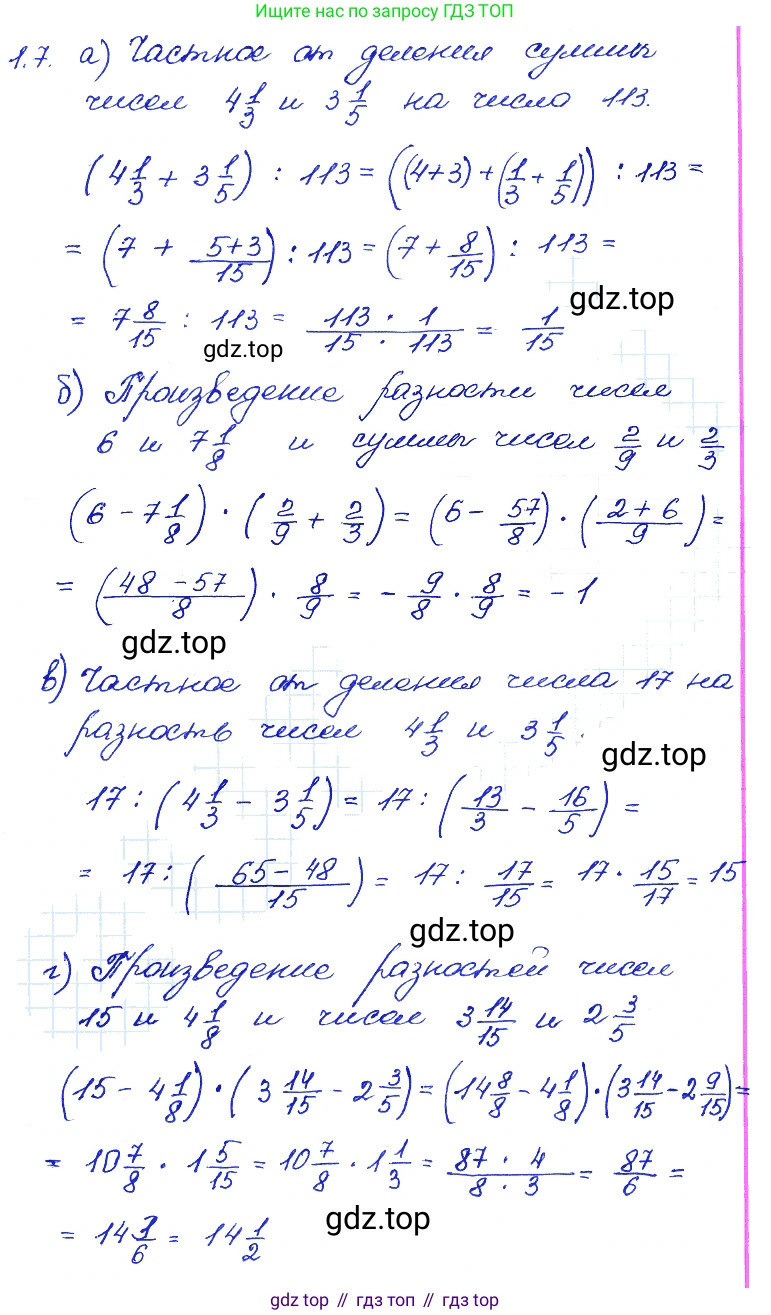 Ищите нас по запросу ГДЗ ТОП
1.7. а) Частное от деления суммы
чисел 4 1/3 и 3 1/5 на число 113.
(4 1/3 + 3 1/5) : 113 = ((4+3) + (1/3 + 1/5)) : 113 =
= (7 + (5+3)/15) : 113 = (7 + 8/15) : 113 =
gdz.top
= 7 8/15 : 113 = (113 · 1)/(15 · 113) = 1/15
gdz.top
б) Произведение разности чисел
6 и 7 1/8 и суммы чисел 2/9 и 2/3
(6 - 7 1/8) · (2/9 + 2/3) = (6 - 57/8) · ((2+6)/9) =
= ((48 - 57)/8) · 8/9 = - 9/8 · 8/9 = - 1
gdz.top
в) Частное от деления числа 17 на
разность чисел 4 1/3 и 3 1/5.
gdz.top
17 : (4 1/3 - 3 1/5) = 17 : (13/3 - 16/5) =
= 17 : ((65 - 48)/15) = 17 : 17/15 = 17 · 15/17 = 15
gdz.top
г) Произведение разностей чисел
15 и 4 1/8 и чисел 3 14/15 и 2 3/5
(15 - 4 1/8) · (3 14/15 - 2 3/5) = (14 8/8 - 4 1/8) · (3 14/15 - 2 9/15) =
= 10 7/8 · 1 5/15 = 10 7/8 · 1 1/3 = (87 · 4)/(8 · 3) = 87/6 =
= 14 3/6 = 14 1/2
gdz.top
gdz top // гдз топ // gdz top